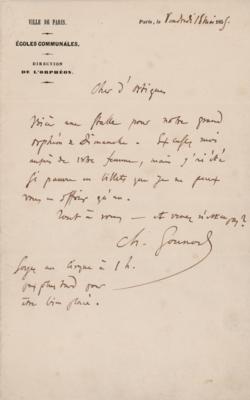 VILLE DE PARIS.
ÉCOLES COMMUNALES.
DIRECTION
DE L'ORPHÉON.
Paris, le Vendredi 18 mai 185
Cher d'Ortigue
Voici une stalle pour notre grand
orphéon de Dimanche. Excusez moi
auprès de votre femme, mais j'ai été
si pauvre en billets que je ne peux
vous en offrir qu'un.
Tout à vous — et venez n'est-ce pas?
Ch. Gounod
Soyez au Cirque à 1 h.
pas plus tard pour
être bien placé.